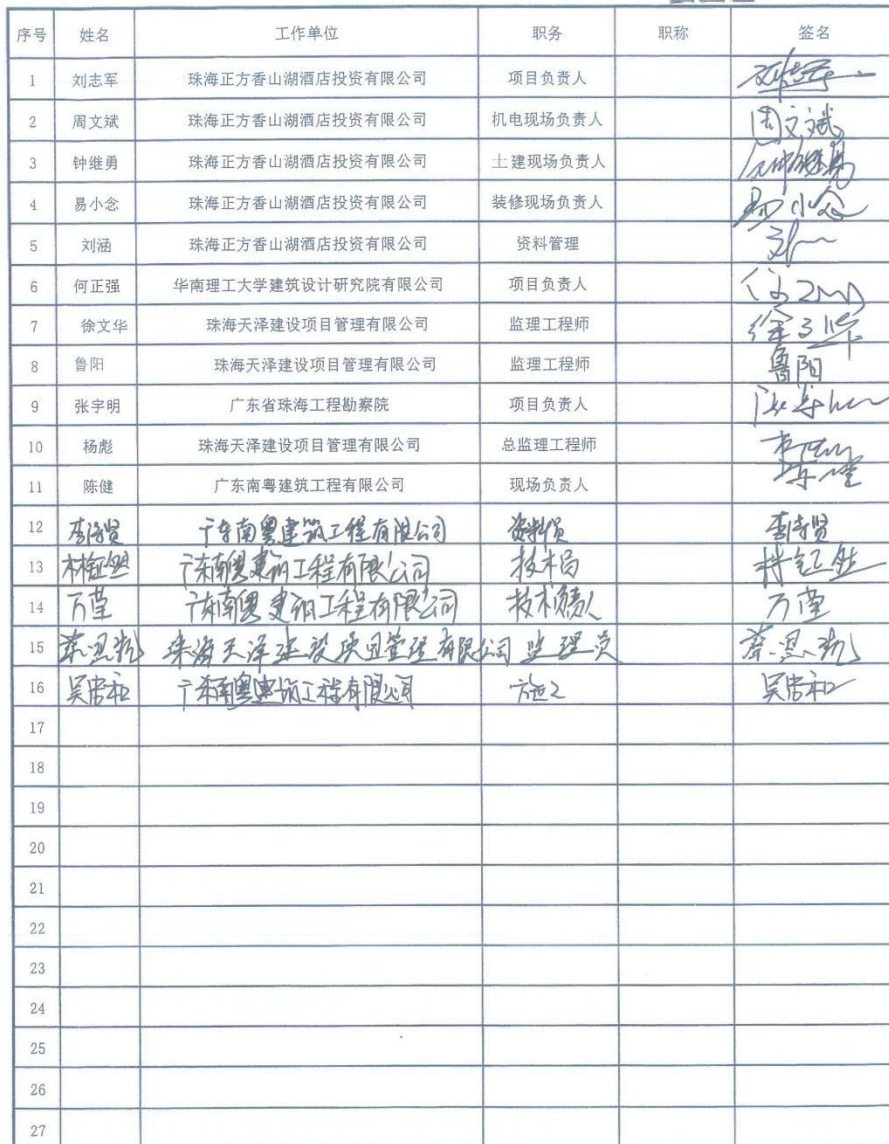 序号 姓名 工作单位 职务 职称 签名
1 刘志军 珠海正方香山湖酒店投资有限公司 项目负责人
2 周文斌 珠海正方香山湖酒店投资有限公司 机电现场负责人 周文斌
3 钟继勇 珠海正方香山湖酒店投资有限公司 土建现场负责人
4 易小念 珠海正方香山湖酒店投资有限公司 装修现场负责人 易小念
5 刘涵 珠海正方香山湖酒店投资有限公司 资料管理
6 何正强 华南理工大学建筑设计研究院有限公司 项目负责人
7 徐文华 珠海天泽建设项目管理有限公司 监理工程师 徐文华
8 鲁阳 珠海天泽建设项目管理有限公司 监理工程师 鲁阳
9 张宇明 广东省珠海工程勘察院 项目负责人
10 杨彪 珠海天泽建设项目管理有限公司 总监理工程师
11 陈健 广东南粤建筑工程有限公司 现场负责人
12 广东南粤建筑工程有限公司 资料员
13 广东南粤建筑工程有限公司
14 万莹 广东南粤建筑工程有限公司 技术负责人 万莹
15 珠海天泽建设项目管理有限公司 监理员
16 吴启和 广东南粤建筑工程有限公司 施工 吴启和
17
18
19
20
21
22
23
24
25
26
27